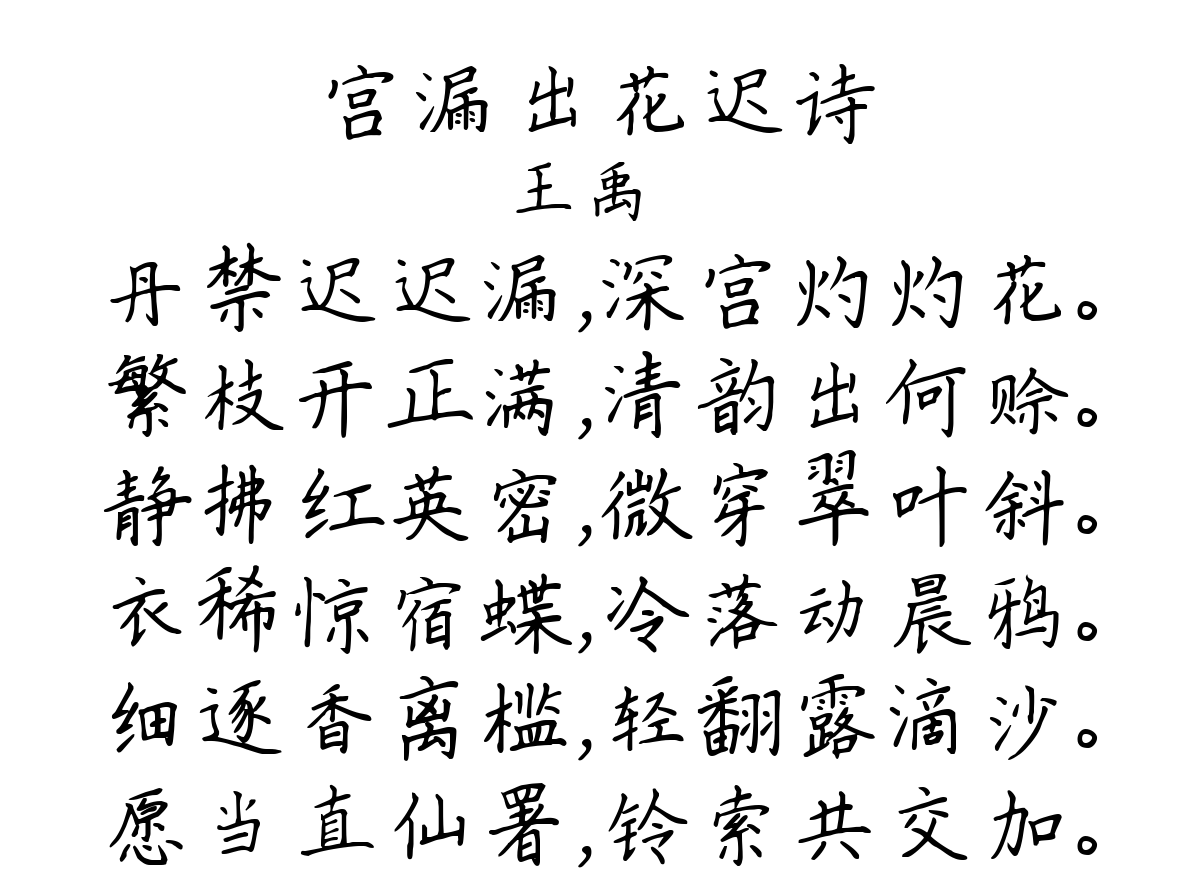 宫漏出花迟诗
王禹
丹禁迟迟漏,深宫灼灼花。
繁枝开正满,清韵出何赊。
静拂红英密,微穿翠叶斜。
衣稀惊宿蝶,冷落动晨鸦。
细逐香离槛,轻翻露滴沙。
愿当直仙署,铃索共交加。